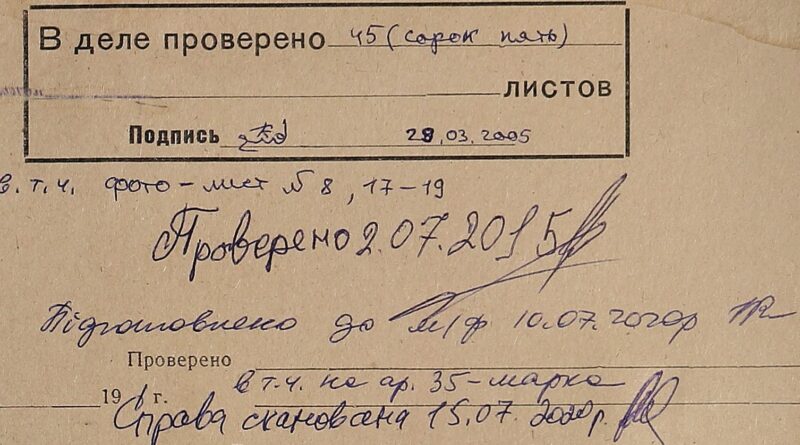 В деле проверено 45 (сорок пять)
листов
Подпись 28.03.2005
в т.ч. фото-лист № 8, 17-19
Проверено 2.07.2015
Підготовлено до м/ф 10.07.2020р
Проверено
в т.ч. на ар. 35-марка
19 г.
Справа сканована 15.07.2020р.